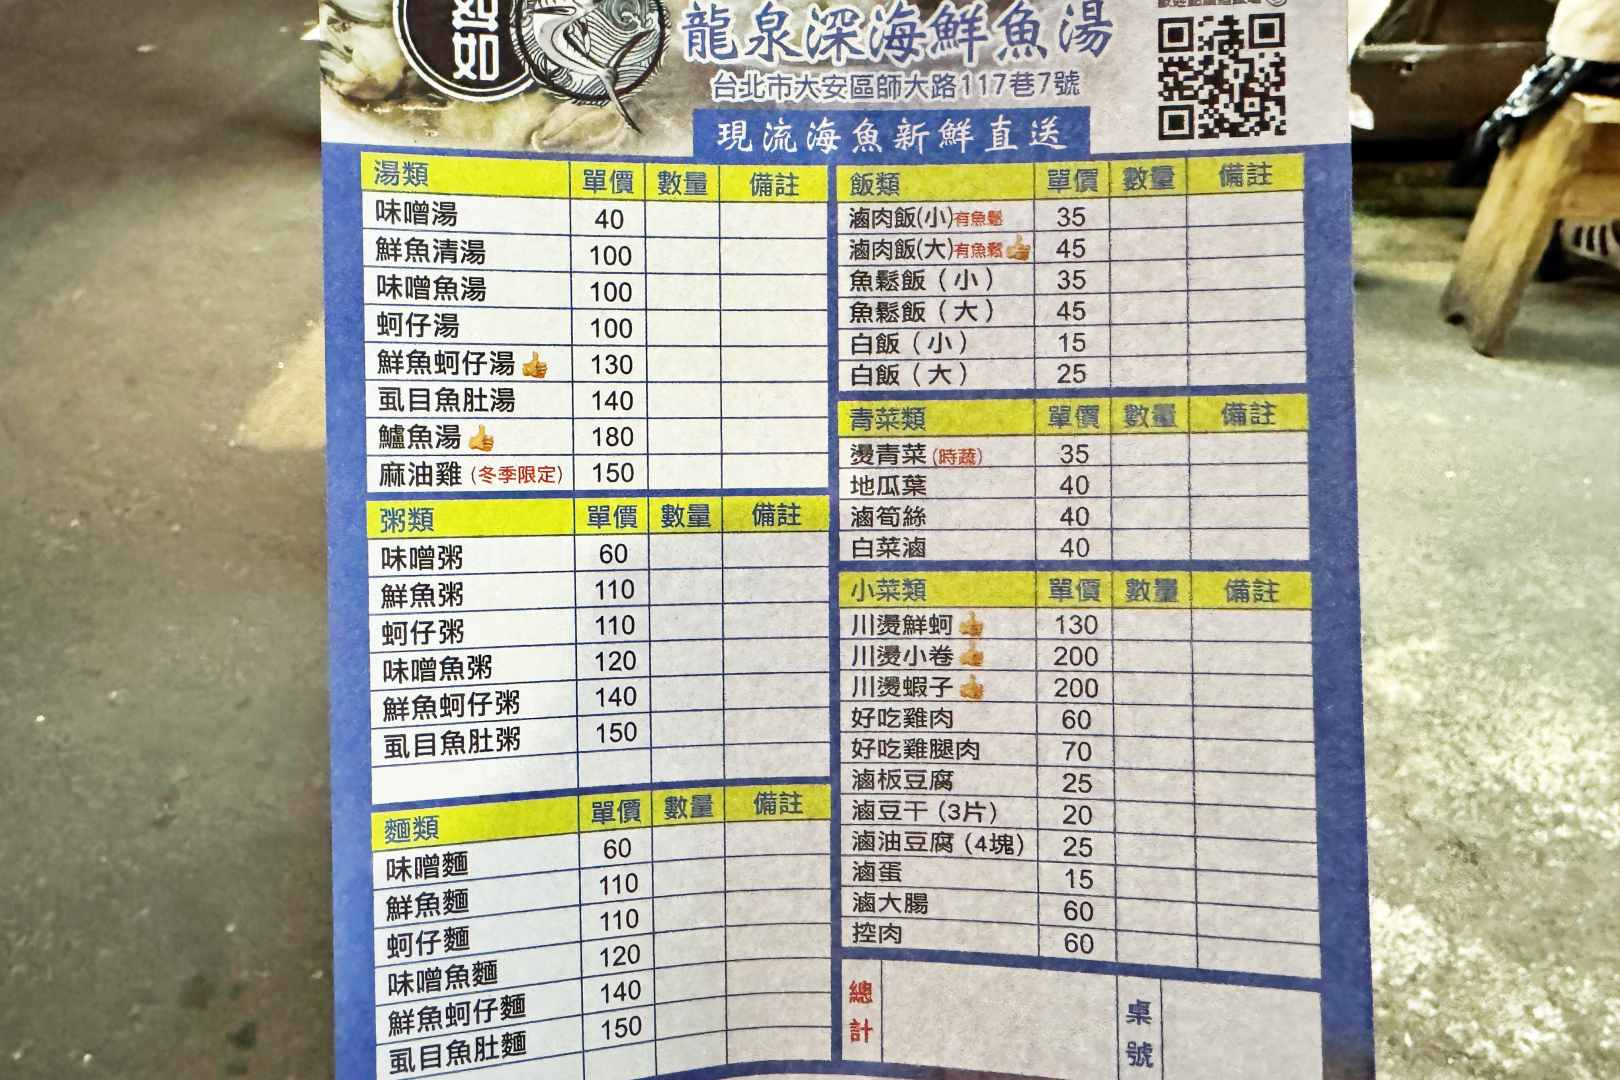 如
龍泉深海鮮魚湯
台北市大安區師大路117巷7號
現流海魚新鮮直送
湯類 單價 數量 備註
味噌湯 40
鮮魚清湯 100
味噌魚湯 100
蚵仔湯 100
鮮魚蚵仔湯👍 130
虱目魚肚湯 140
鱸魚湯👍 180
麻油雞 (冬季限定) 150
粥類 單價 數量 備註
味噌粥 60
鮮魚粥 110
蚵仔粥 110
味噌魚粥 120
鮮魚蚵仔粥 140
虱目魚肚粥 150
麵類 單價 數量 備註
味噌麵 60
鮮魚麵 110
蚵仔麵 110
味噌魚麵 120
鮮魚蚵仔麵 140
虱目魚肚麵 150
飯類 單價 數量 備註
滷肉飯(小)有魚鬆 35
滷肉飯(大)有魚鬆👍 45
魚鬆飯(小) 35
魚鬆飯(大) 45
白飯(小) 15
白飯(大) 25
青菜類 單價 數量 備註
燙青菜(時蔬) 35
地瓜葉 40
滷筍絲 40
白菜滷 40
小菜類 單價 數量 備註
川燙鮮蚵👍 130
川燙小卷👍 200
川燙蝦子👍 200
好吃雞肉 60
好吃雞腿肉 70
滷板豆腐 25
滷豆干(3片) 20
滷油豆腐(4塊) 25
滷蛋 15
滷大腸 60
控肉 60
總計 桌號